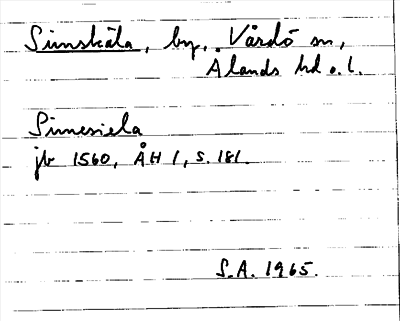 Simskäla, by, Vårdö sn,
Ålands hd o. l.
Simesiela
jb 1560, ÅH 1, s. 181.
S.A. 1965.